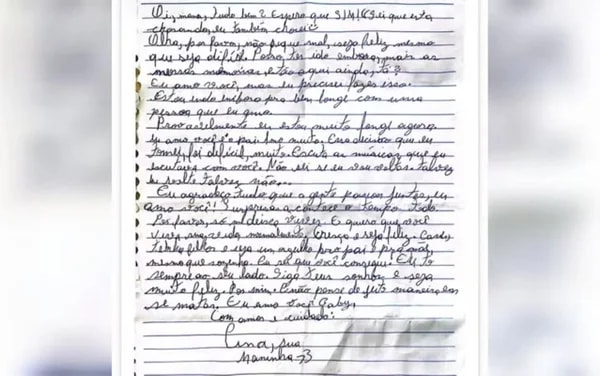 Oi, mana, tudo bem? Espero que SIM! Sei que está
chorando, eu também chorei
Olha, por favor, não fique mal, seja feliz mesmo
que seja difícil. Posso ter ido embora, mais as
nossas memórias estão aqui ainda, tá?
Eu amo você, mas eu preciso fazer isso.
Estou indo embora pra bem longe com uma
pessoa que eu amo.
Provavelmente eu estou muito longe agora.
Eu amo você e o pai muito. Essa decisão que eu
tomei, foi difícil, muito. Escute as músicas que eu
escutava com você. Não sei se eu vou voltar. Talvez
eu volte talvez não...
Eu agradeço tudo que a gente passou juntas, eu
amo você!! acontece o tempo todo.
Por favor, só não deixe viver. E quero que você
viva Cresça e seja feliz. Case,
tenha filhos e seja um orgulho pro pai e pra mãe,
mesmo que sozinha. Eu sei que você consegue. Eu tô
sempre ao seu lado. Siga teus sonhos e seja
muito feliz. Por mim. E não pense de jeito maneira em
se matar. Eu amo você Gaby.
Com amor e cuidado:
sua
Maninha <3